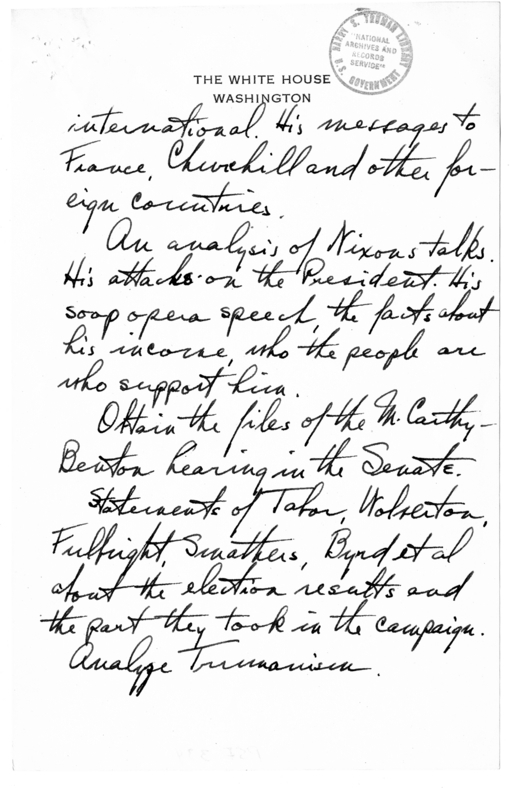 HARRY S. TRUMAN LIBRARY
"NATIONAL
ARCHIVES AND
RECORDS
SERVICE"
U.S. GOVERNMENT
THE WHITE HOUSE
WASHINGTON
international. His messages to
France, Churchill and other for-
eign countries.
An analysis of Nixons talks.
His attacks on the President. His
soap opera speech, the facts about
his income, who the people are
who support him.
Obtain the files of the McCarthy-
Benton hearing in the Senate.
Statements of Tabor, Wolverton,
Fulbright, Smathers, Byrd et al
about the election results and
the part they took in the campaign.
Analyze Trumanism.